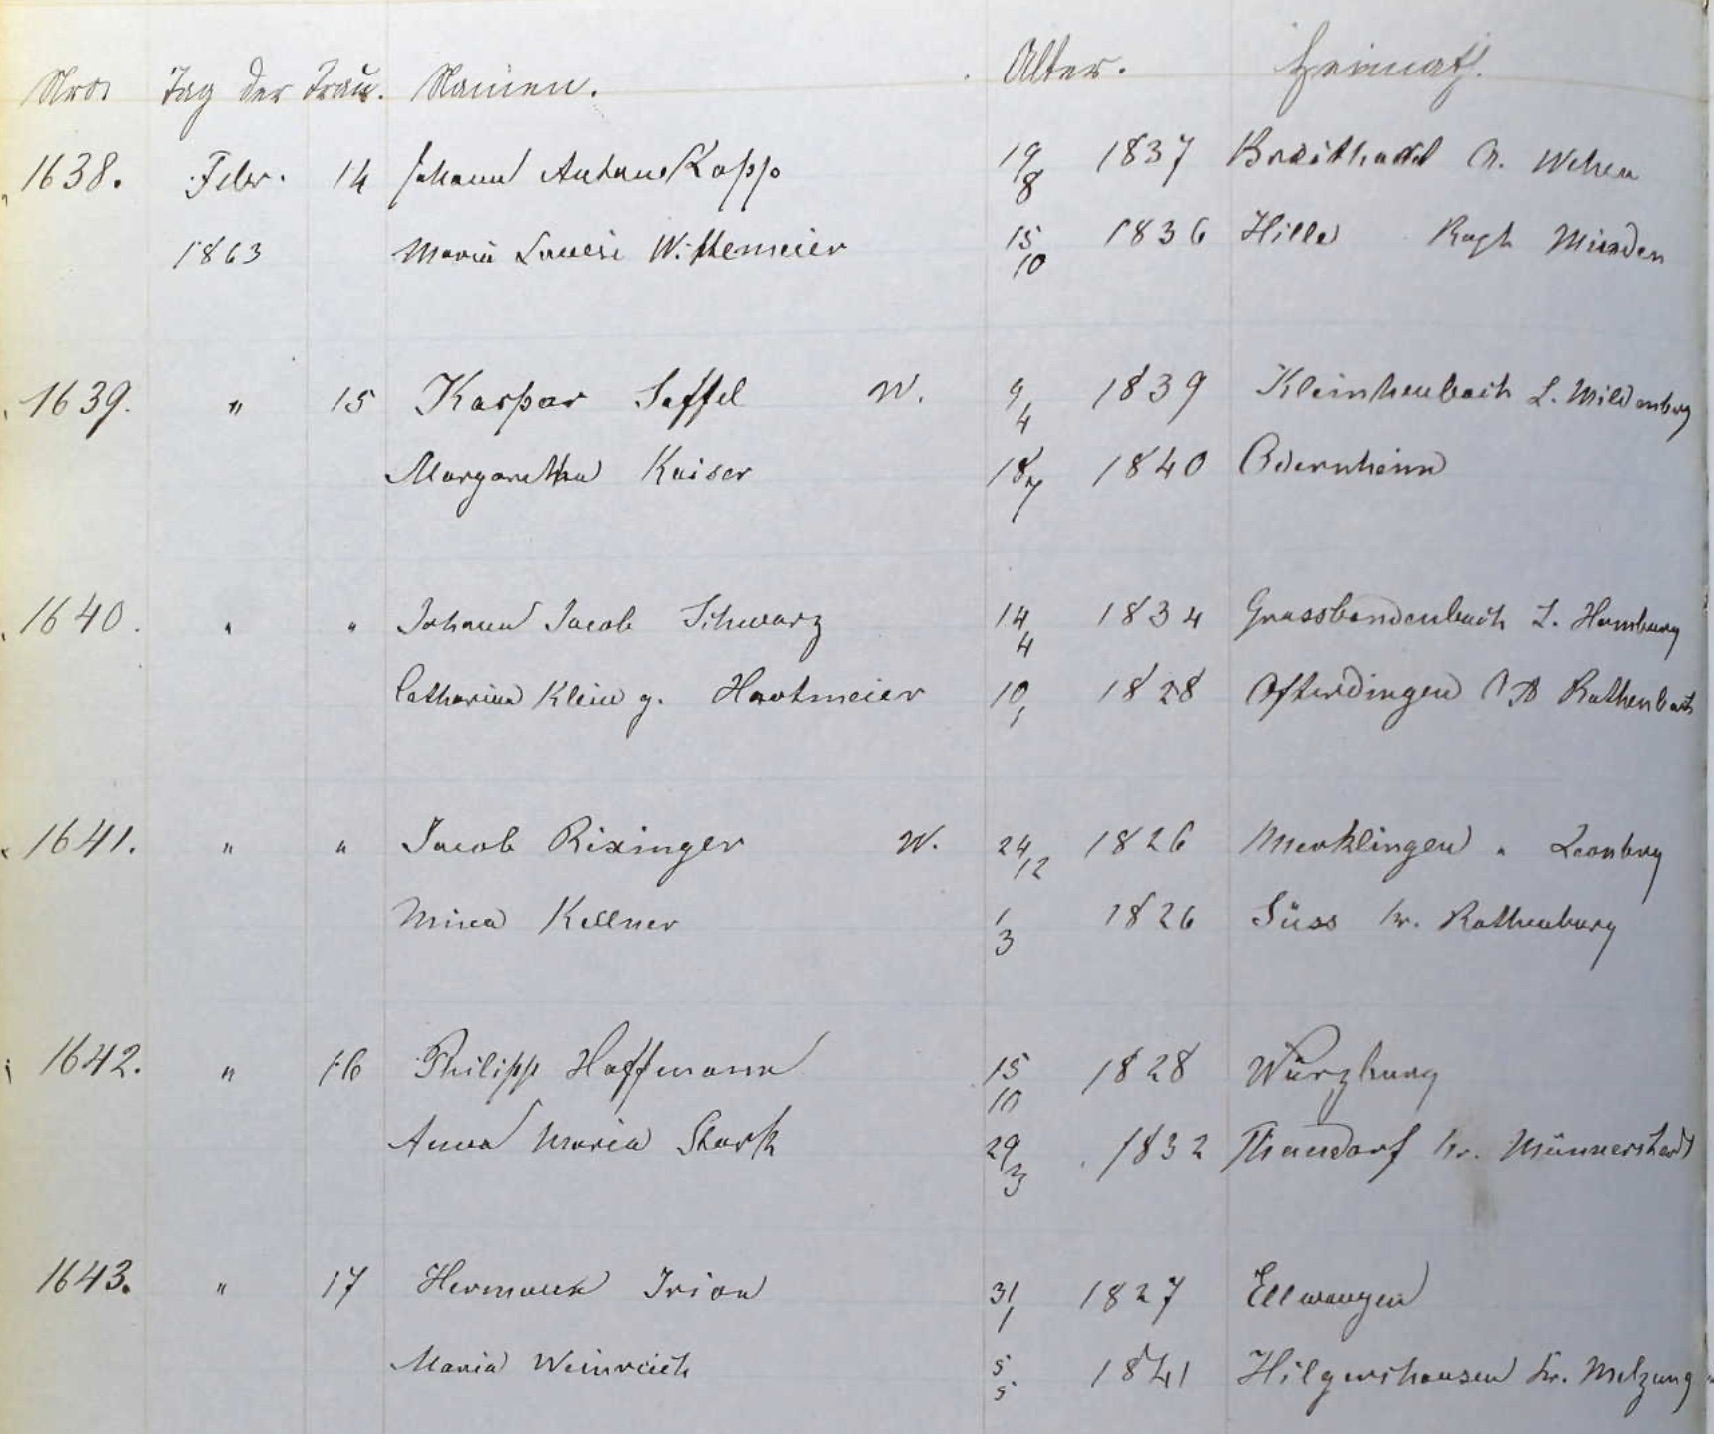 Nro. Tag der Trau. Namen. Alter. Heimath.
1638. Febr. 14 Johann Anton Kopp 19/8 1837 Breithardt A. Wehen
1863 Maria Louise Wittemeier 15/10 1836 Hille Rugh Minden
1639. " 15 Kaspar Seffel W. 9/4 1839 Kleinheubach L. Mildenbrg
Margaretha Kaiser 18/7 1840 Odernheim
1640. " " Johann Jacob Schwarz 14/4 1834 Grossbundenbach L. Homburg
Catharina Klein g. Hartmeier 10/1 1828 Ofterdingen OA
1641. " " Jacob Rixinger W. 24/12 1826 Merklingen " Leonbrg
Mina Kellner 1/3 1826 Süss Kr. Rothenburg
1642. " 16 Philipp Hoffmann 15/10 1828 Würzburg
Anna Maria Stark 29/3 1832 Thundorf Kr. Münnerstadt
1643. " 17 Hermann Irion 31/1 1827 Ellwangen
Maria Weinreich 5/5 1841 Hilgershausen Kr. Melzung